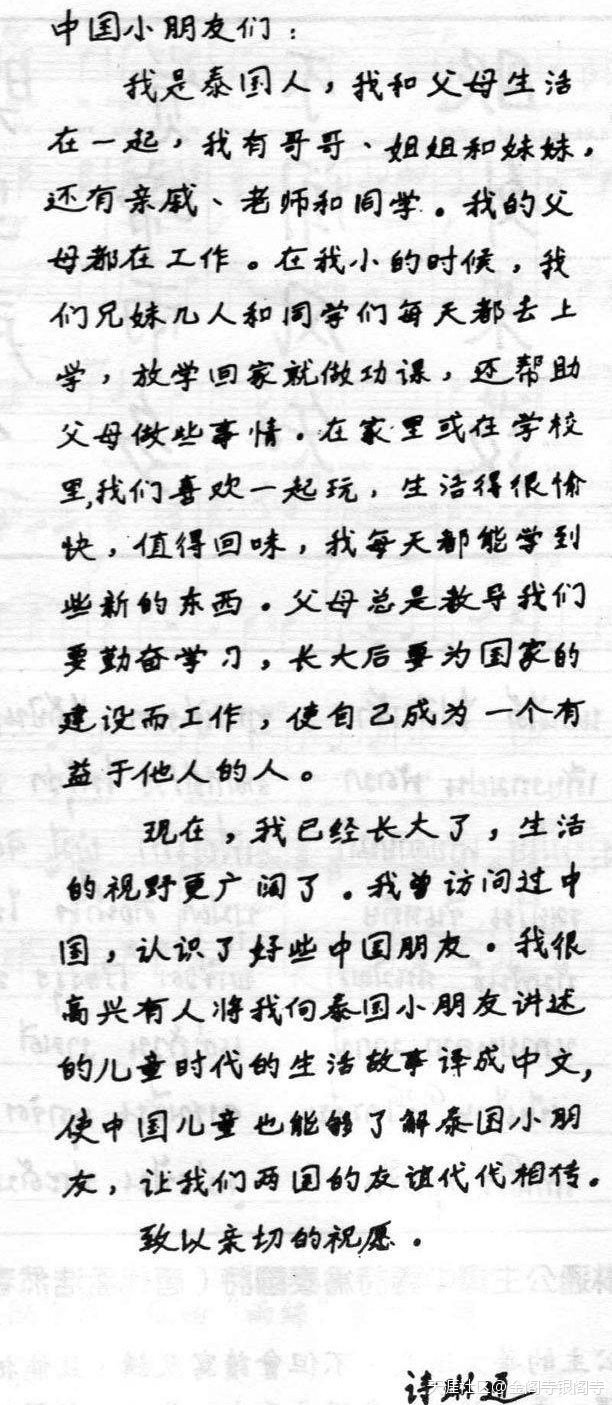 中国小朋友们：
我是泰国人，我和父母生活
在一起，我有哥哥、姐姐和妹妹，
还有亲戚、老师和同学。我的父
母都在工作。在我小的时候，我
们兄妹几人和同学们每天都去上
学，放学回家就做功课，还帮助
父母做些事情。在家里或在学校
里,我们喜欢一起玩，生活得很愉
快，值得回味，我每天都能学到
些新的东西。父母总是教导我们
要勤奋学习，长大后要为国家的
建设而工作，使自己成为一个有
益于他人的人。
现在，我已经长大了，生活
的视野更广阔了。我曾访问过中
国，认识了好些中国朋友。我很
高兴有人将我向泰国小朋友讲述
的儿童时代的生活故事译成中文，
使中国儿童也能够了解泰国小朋
友，让我们两国的友谊代代相传。
致以亲切的祝愿。
诗琳通
天涯社区@金阁寺银阁寺